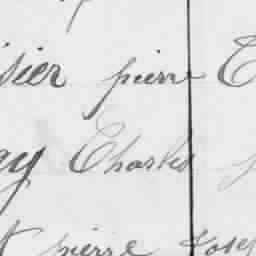 sier pierre C
gy Charles
t pierre Josep